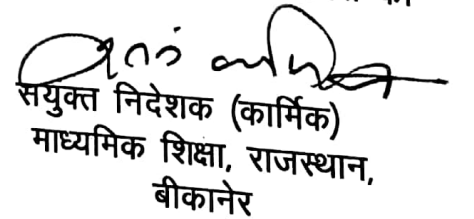 सयुक्त निदेशक (कार्मिक)
माध्यमिक शिक्षा, राजस्थान,
बीकानेर